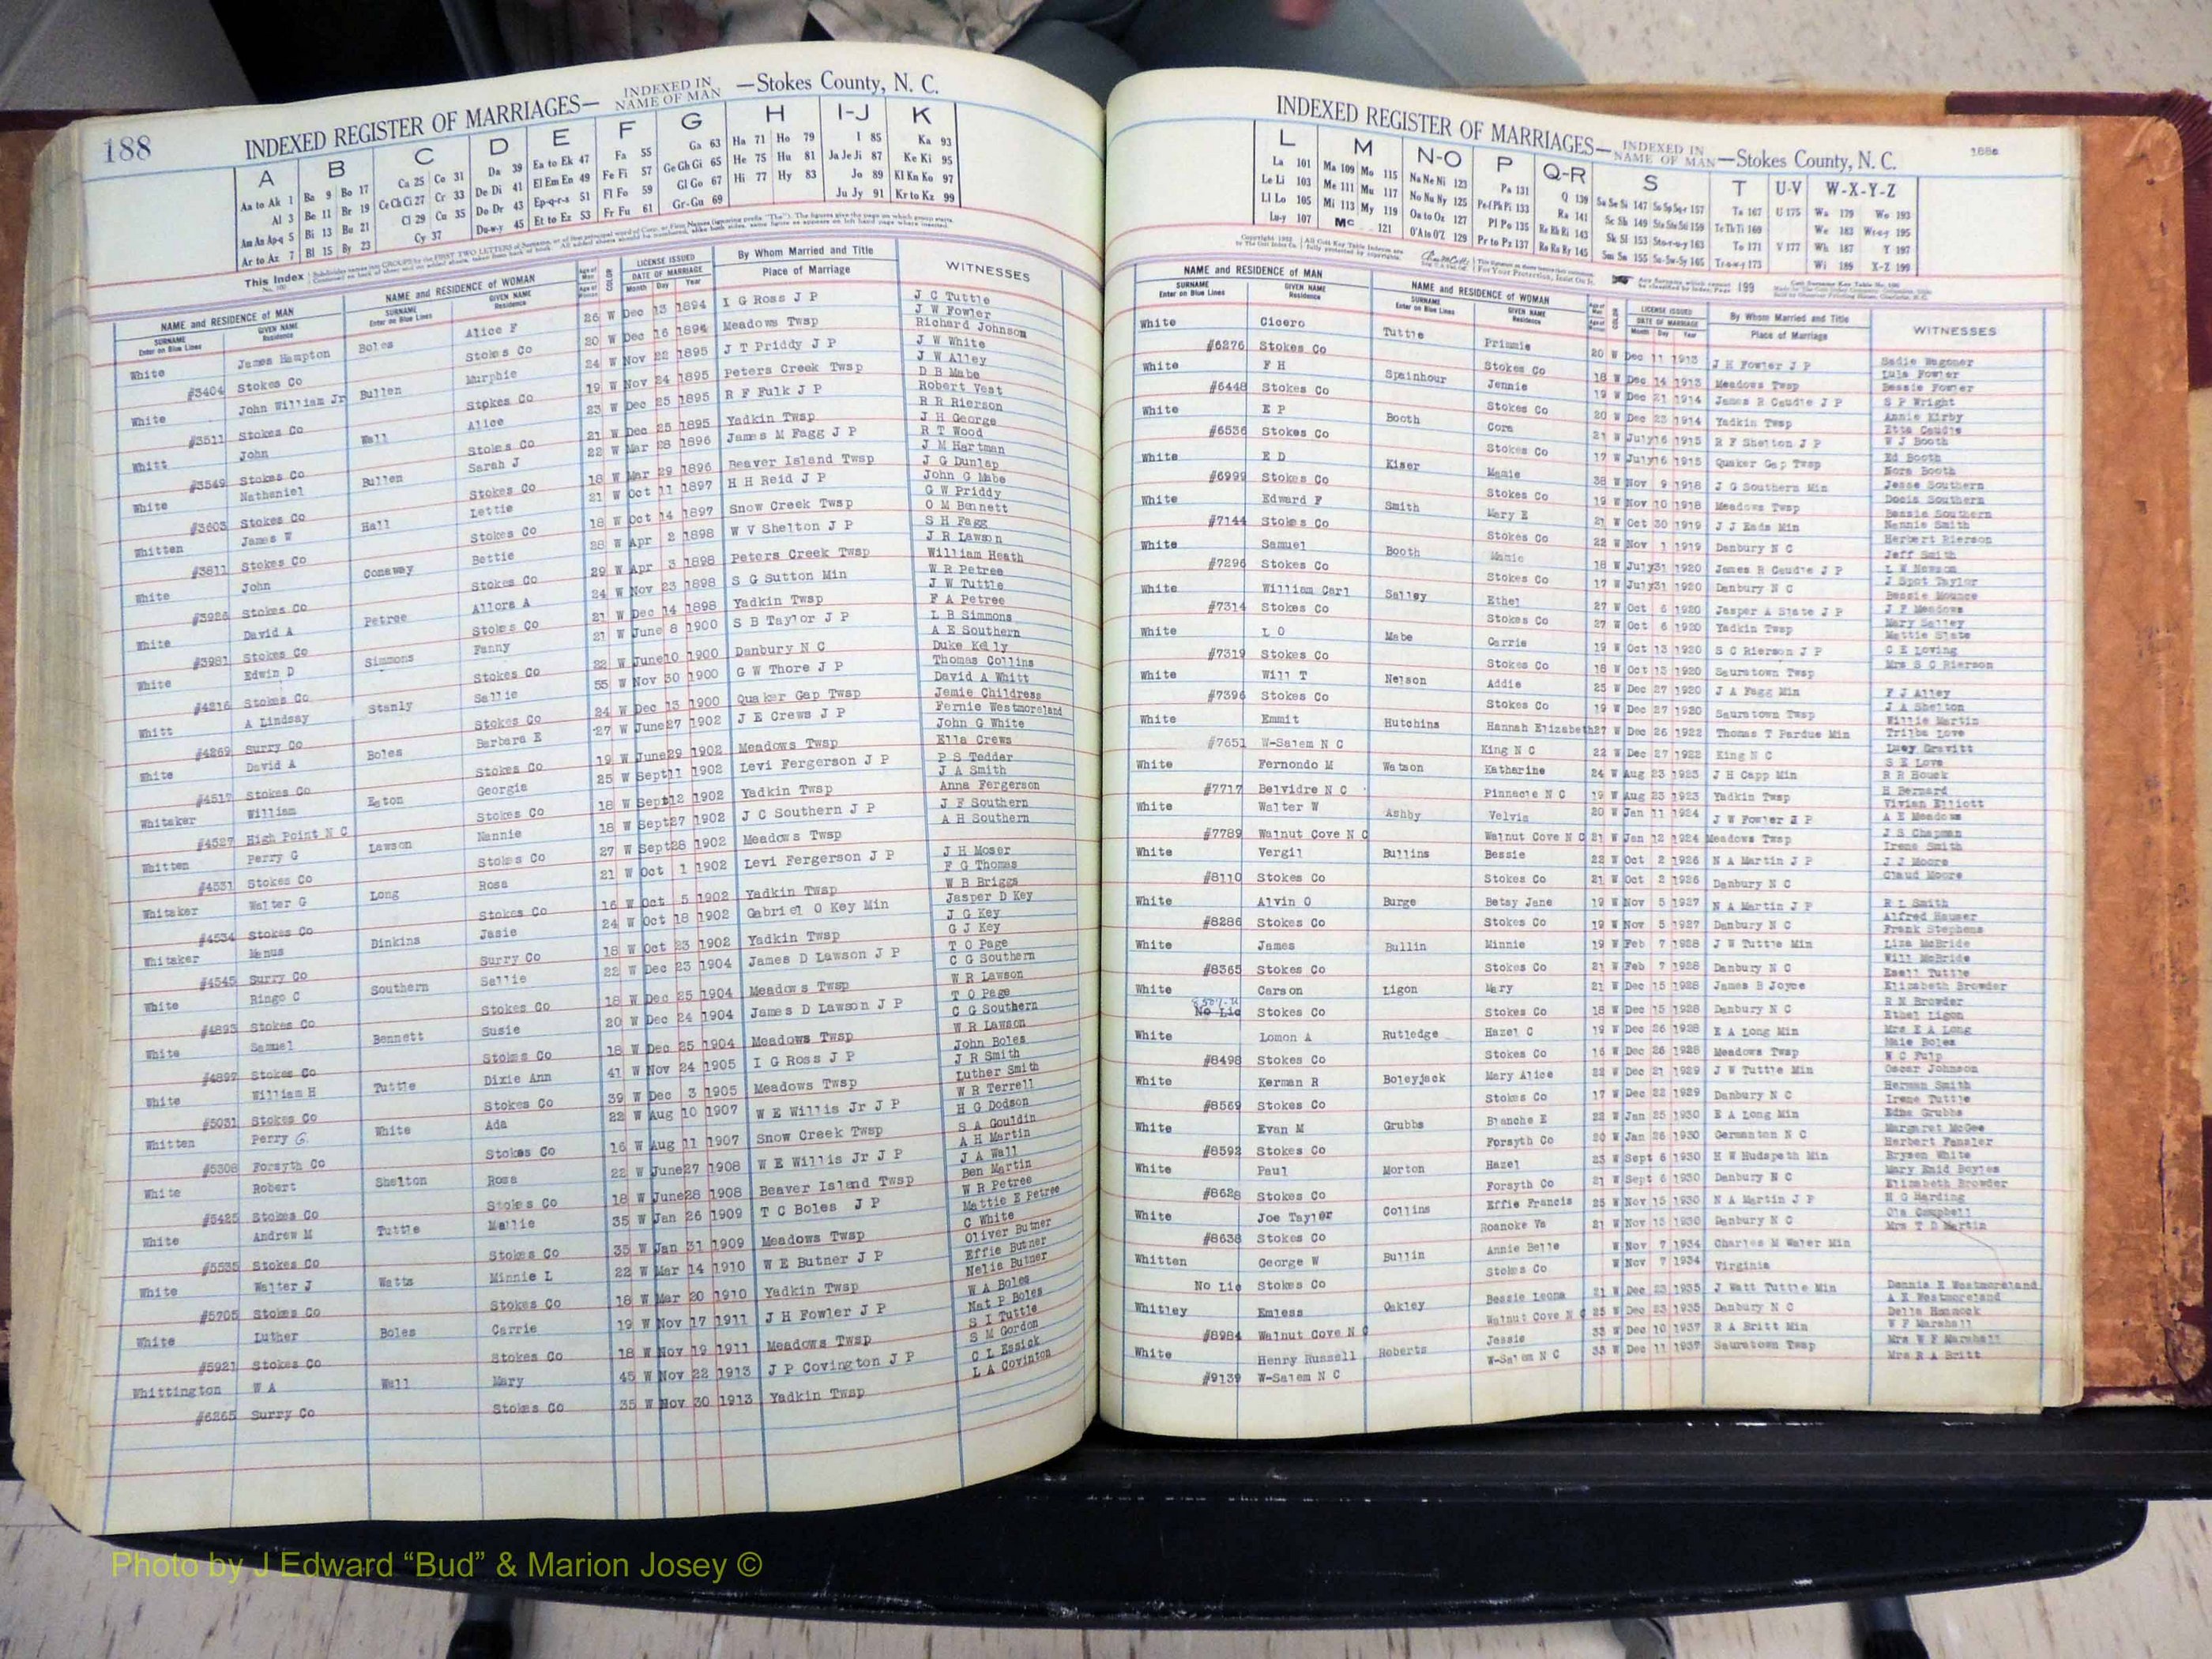 188
INDEXED REGISTER OF MARRIAGES— INDEXED IN NAME OF MAN —Stokes County, N. C.
A B C D E F G H I-J K
Aa to Ak 1 Ba 9 Bo 17 Ca 25 Co 31 Da 39 Ea to Ek 47 Fa 55 Ga 63 Ha 71 Ho 79 I 85 Ka 93
Al 3 Be 11 Br 19 Ce Ch Ci 27 Cr 33 De Di 41 El Em En 49 Fe Fi 57 Ge Gh Gi 65 He 75 Hu 81 Ja Je Ji 87 Ke Ki 95
Am An Ap-q 5 Bi 13 Bu 21 Cl 29 Cu 35 Do Dr 43 Ep-q-r-s 51 Fl Fo 59 Gl Go 67 Hi 77 Hy 83 Jo 89 Kl Kn Ko 97
Ar to Az 7 Bl 15 By 23 Cy 37 Du-w-y 45 Et to Ez 53 Fr Fu 61 Gr-Gu 69 Ju Jy 91 Kr to Kz 99
This Index
NAME and RESIDENCE OF MAN NAME and RESIDENCE OF WOMAN LICENSE ISSUED By Whom Married and Title WITNESSES
SURNAME GIVEN NAME SURNAME GIVEN NAME DATE OF MARRIAGE Place of Marriage
Enter on Blue Lines Residence Enter on Blue Lines Residence Month Day Year
White James Hampton Boles Alice F 26 W Dec 13 1894 I G Ross J P J C Tuttle
J W Fowler
#3404 Stokes Co Stokes Co 20 W Dec 16 1894 Meadows Twsp Richard Johnson
White John William Jr Bullen Murphie 24 W Nov 22 1895 J T Priddy J P J W White
J W Alley
#3511 Stokes Co Stokes Co 19 W Nov 24 1895 Peters Creek Twsp D B Mabe
Whitt John Wall Alice 23 W Dec 25 1895 R F Fulk J P Robert Vest
R R Rierson
#3549 Stokes Co Stokes Co 21 W Dec 25 1895 Yadkin Twsp J H George
White Nathaniel Bullen Sarah J 22 W Mar 28 1896 James M Fagg J P R T Wood
J M Hartman
#3603 Stokes Co Stokes Co 18 W Mar 29 1896 Beaver Island Twsp J G Dunlap
Whitten James W Hall Lettie 21 W Oct 11 1897 H H Reid J P John G Mabe
G W Priddy
#3811 Stokes Co Stokes Co 18 W Oct 14 1897 Snow Creek Twsp O M Bennett
White John Conaway Bettie 28 W Apr 2 1898 W V Shelton J P S H Fagg
J R Lawson
#3926 Stokes Co Stokes Co 29 W Apr 3 1898 Peters Creek Twsp William Heath
White David A Petree Allora A 24 W Nov 23 1898 S G Sutton Min W R Petree
J W Tuttle
#3981 Stokes Co Stokes Co 21 W Dec 14 1898 Yadkin Twsp F A Petree
White Edwin D Simmons Fanny 21 W June 8 1900 S B Taylor J P L B Simmons
A E Southern
#4216 Stokes Co Stokes Co 22 W June10 1900 Danbury N C Duke Kelly
Whitt A Lindsay Stanly Sallie 55 W Nov 30 1900 G W Thore J P Thomas Collins
David A Whitt
#4269 Surry Co Stokes Co 24 W Dec 13 1900 Quaker Gap Twsp Jemie Childress
White David A Boles Barbara E 27 W June27 1902 J E Crews J P Fernie Westmoreland
John G White
#4517 Stokes Co Stokes Co 19 W June29 1902 Meadows Twsp Ella Crews
Whitaker William Eston Georgie 25 W Sept11 1902 Levi Fergerson J P P S Tedder
J A Smith
#4527 High Point N C Stokes Co 18 W Sept12 1902 Yadkin Twsp Anna Fergerson
Whitten Perry G Lawson Nannie 18 W Sept27 1902 J C Southern J P J F Southern
A H Southern
#4531 Stokes Co Stokes Co 27 W Sept28 1902 Meadows Twsp
Whitaker Walter G Long Rosa 21 W Oct 1 1902 Levi Fergerson J P J H Moser
F G Thomas
#4534 Stokes Co Stokes Co 16 W Oct 5 1902 Yadkin Twsp W B Briggs
Whitaker Menus Dinkins Jasie 24 W Oct 18 1902 Gabriel O Key Min Jasper D Key
J G Key
#4545 Surry Co Surry Co 18 W Oct 23 1902 Yadkin Twsp G J Key
White Ringo C Southern Sallie 22 W Dec 23 1904 James D Lawson J P T O Page
C G Southern
#4893 Stokes Co Stokes Co 18 W Dec 25 1904 Meadows Twsp W R Lawson
White Samuel Bennett Susie 20 W Dec 24 1904 James D Lawson J P T O Page
C G Southern
#4897 Stokes Co Stokes Co 18 W Dec 25 1904 Meadows Twsp W R Lawson
White William H Tuttle Dixie Ann 41 W Nov 24 1905 I G Ross J P John Boles
J R Smith
#5031 Stokes Co Stokes Co 39 W Dec 3 1905 Meadows Twsp Luther Smith
Whitten Perry G. White Ada 22 W Aug 10 1907 W E Willis Jr J P W R Terrell
H G Dodson
#5308 Forsyth Co Stokes Co 16 W Aug 11 1907 Snow Creek Twsp S A Gouldin
White Robert Shelton Rosa 22 W June27 1908 W E Willis Jr J P A H Martin
J A Wall
#5425 Stokes Co Stokes Co 18 W June28 1908 Beaver Island Twsp Ben Martin
White Andrew M Tuttle Mallie 35 W Jan 26 1909 T C Boles J P W R Petree
Mattie E Petree
#5535 Stokes Co Stokes Co 35 W Jan 31 1909 Meadows Twsp C White
White Walter J Watts Minnie L 22 W Mar 14 1910 W E Butner J P Oliver Butner
Effie Butner
#5705 Stokes Co Stokes Co 18 W Mar 20 1910 Yadkin Twsp Nelia Butner
White Luther Boles Carrie 19 W Nov 17 1911 J H Fowler J P W A Boles
Nat P Boles
#5921 Stokes Co Stokes Co 18 W Nov 19 1911 Meadows Twsp S I Tuttle
Whittington W A Wall Mary 45 W Nov 22 1913 J P Covington J P S M Gordon
C L Essick
#6265 Surry Co Stokes Co 35 W Nov 30 1913 Yadkin Twsp L A Covinton
INDEXED REGISTER OF MARRIAGES— INDEXED IN NAME OF MAN —Stokes County, N. C.
L M N-O P Q-R S T U-V W-X-Y-Z
La 101 Ma 109 Mo 115 Na Ne Ni 123 Pa 131 Q 139 Sa Se Si 147 So Sp Sq-r 157 Ta 167 U 175 Wa 179 Wo 193
Le Li 103 Me 111 Mu 117 No Nu Ny 125 Pe-f Ph Pi 133 Ra 141 Sc Sh 149 Ste Sti 159 Te Th Ti 169 We 183 Wr-u-y 195
Ll Lo 105 Mi 113 My 119 Oa to Oz 127 Pl Po 135 Re Rh Ri 143 Sk Sl 153 Sto-r-u-y 163 To 171 V 177 Wh 187 Y 197
Lu-y 107 Mc 121 O'A to O'Z 129 Pr to Pz 137 Ro Ru Ry 145 Sm Sn 155 Su-Sw-Sy 165 Tr-u-w-y 173 Wi 189 X-Z 199
NAME and RESIDENCE OF MAN NAME and RESIDENCE OF WOMAN LICENSE ISSUED By Whom Married and Title WITNESSES
SURNAME GIVEN NAME SURNAME GIVEN NAME DATE OF MARRIAGE Place of Marriage
Enter on Blue Lines Residence Enter on Blue Lines Residence Month Day Year
White Cicero Tuttle Primmie 20 W Dec 11 1913 J H Fowler J P Sadie Wagoner
Lula Fowler
#6276 Stokes Co Stokes Co 18 W Dec 14 1913 Meadows Twsp Bessie Fowler
White F H Spainhour Jennie 19 W Dec 21 1914 James R Caudle J P S P Wright
Annie Kirby
#6448 Stokes Co Stokes Co 20 W Dec 23 1914 Yadkin Twsp Etta Caudle
White E P Booth Cora 21 W July16 1915 R F Shelton J P W J Booth
Ed Booth
#6536 Stokes Co Stokes Co 17 W July16 1915 Quaker Gap Twsp Nora Booth
White E D Kiser Mamie 38 W Nov 9 1918 J G Southern Min Jesse Southern
Docia Southern
#6999 Stokes Co Stokes Co 19 W Nov 10 1918 Meadows Twsp Bessie Southern
White Edward F Smith Mary E 21 W Oct 30 1919 J J Eads Min Nannie Smith
Herbert Rierson
#7144 Stokes Co Stokes Co 22 W Nov 1 1919 Danbury N C Jeff Smith
White Samuel Booth Mamie 18 W July31 1920 James R Caudle J P L W Newsom
J Spot Taylor
#7296 Stokes Co Stokes Co 17 W July31 1920 Danbury N C Bessie Mounce
White William Carl Salley Ethel 27 W Oct 6 1920 Jasper A Slate J P J F Meadows
Mary Salley
#7314 Stokes Co Stokes Co 27 W Oct 6 1920 Yadkin Twsp Mattie Slate
White L O Mabe Carrie 19 W Oct 13 1920 S C Rierson J P C E Loving
Mrs S C Rierson
#7319 Stokes Co Stokes Co 18 W Oct 13 1920 Sauratown Twsp
White Will T Nelson Addie 25 W Dec 27 1920 J A Fagg Min F J Alley
J A Shelton
#7396 Stokes Co Stokes Co 19 W Dec 27 1920 Sauratown Twsp Willie Martin
White Emmit Hutchins Hannah Elizabeth 27 W Dec 26 1922 Thomas T Pardue Min Trilba Love
Luey Gravitt
#7651 W-Salem N C King N C 22 W Dec 27 1922 King N C S E Love
White Fernondo M Watson Katharine 24 W Aug 23 1923 J H Capp Min R R Houck
H Bernard
#7717 Belvidre N C Pinnacle N C 19 W Aug 23 1923 Yadkin Twsp Vivian Elliott
White Walter W Ashby Velvia 20 W Jan 11 1924 J W Fowler J P A E Meadows
J S Chapman
#7789 Walnut Cove N C Walnut Cove N C 21 W Jan 12 1924 Meadows Twsp Irene Smith
White Vergil Bullins Bessie 22 W Oct 2 1926 N A Martin J P J J Moore
Claud Moore
#8110 Stokes Co Stokes Co 21 W Oct 2 1926 Danbury N C
White Alvin O Burge Betsy Jane 19 W Nov 5 1927 N A Martin J P R L Smith
Alfred Hauser
#8286 Stokes Co Stokes Co 19 W Nov 5 1927 Danbury N C Frank Stephens
White James Bullin Minnie 19 W Feb 7 1928 J W Tuttle Min Liza McBride
Will McBride
#8365 Stokes Co Stokes Co 21 W Feb 7 1928 Danbury N C Esell Tuttle
White Carson Ligon Mary 21 W Dec 15 1928 James B Joyce Elizabeth Browder
R N Browder
No Lic Stokes Co Stokes Co 18 W Dec 15 1928 Danbury N C Ethel Ligon
White Lomon A Rutledge Hazel C 19 W Dec 26 1928 E A Long Min Mrs E A Long
Maie Boles
#8498 Stokes Co Stokes Co 16 W Dec 26 1928 Meadows Twsp W C Fulp
White Kerman R Boleyjack Mary Alice 22 W Dec 21 1929 J W Tuttle Min Oscar Johnson
Herman Smith
#8569 Stokes Co Stokes Co 17 W Dec 22 1929 Danbury N C Irene Tuttle
White Evan M Grubbs Blanche E 22 W Jan 25 1930 E A Long Min Edna Grubbs
Margaret McGee
#8592 Stokes Co Forsyth Co 20 W Jan 26 1930 Germanton N C Herbert Fansler
White Paul Morton Hazel 23 W Sept 6 1930 H W Hudspeth Min Brysen White
Mary Enid Boyles
#8628 Stokes Co Forsyth Co 21 W Sept 6 1930 Danbury N C Elizabeth Browder
White Joe Taylor Collins Effie Francis 25 W Nov 15 1930 N A Martin J P H G Harding
Ola Campbell
#8638 Stokes Co Roanoke Va 21 W Nov 15 1930 Danbury N C Mrs T D Martin
Whitten George W Bullin Annie Belle W Nov 7 1934 Charles M Water Min
No Lic Stokes Co Stokes Co W Nov 7 1934 Virginia
Whitley Emless Oakley Bessie Leona 21 W Dec 23 1935 J Watt Tuttle Min Dennis E Westmoreland
A K Westmoreland
#8984 Walnut Cove N C Walnut Cove N C 25 W Dec 23 1935 Danbury N C Della Hancock
White Henry Russell Roberts Jessie 33 W Dec 10 1937 R A Britt Min W F Marshall
Mrs W F Marshall
#9139 W-Salem N C W-Salem N C 33 W Dec 11 1937 Sauratown Twsp Mrs R A Britt
Photo by J Edward “Bud” & Marion Josey ©